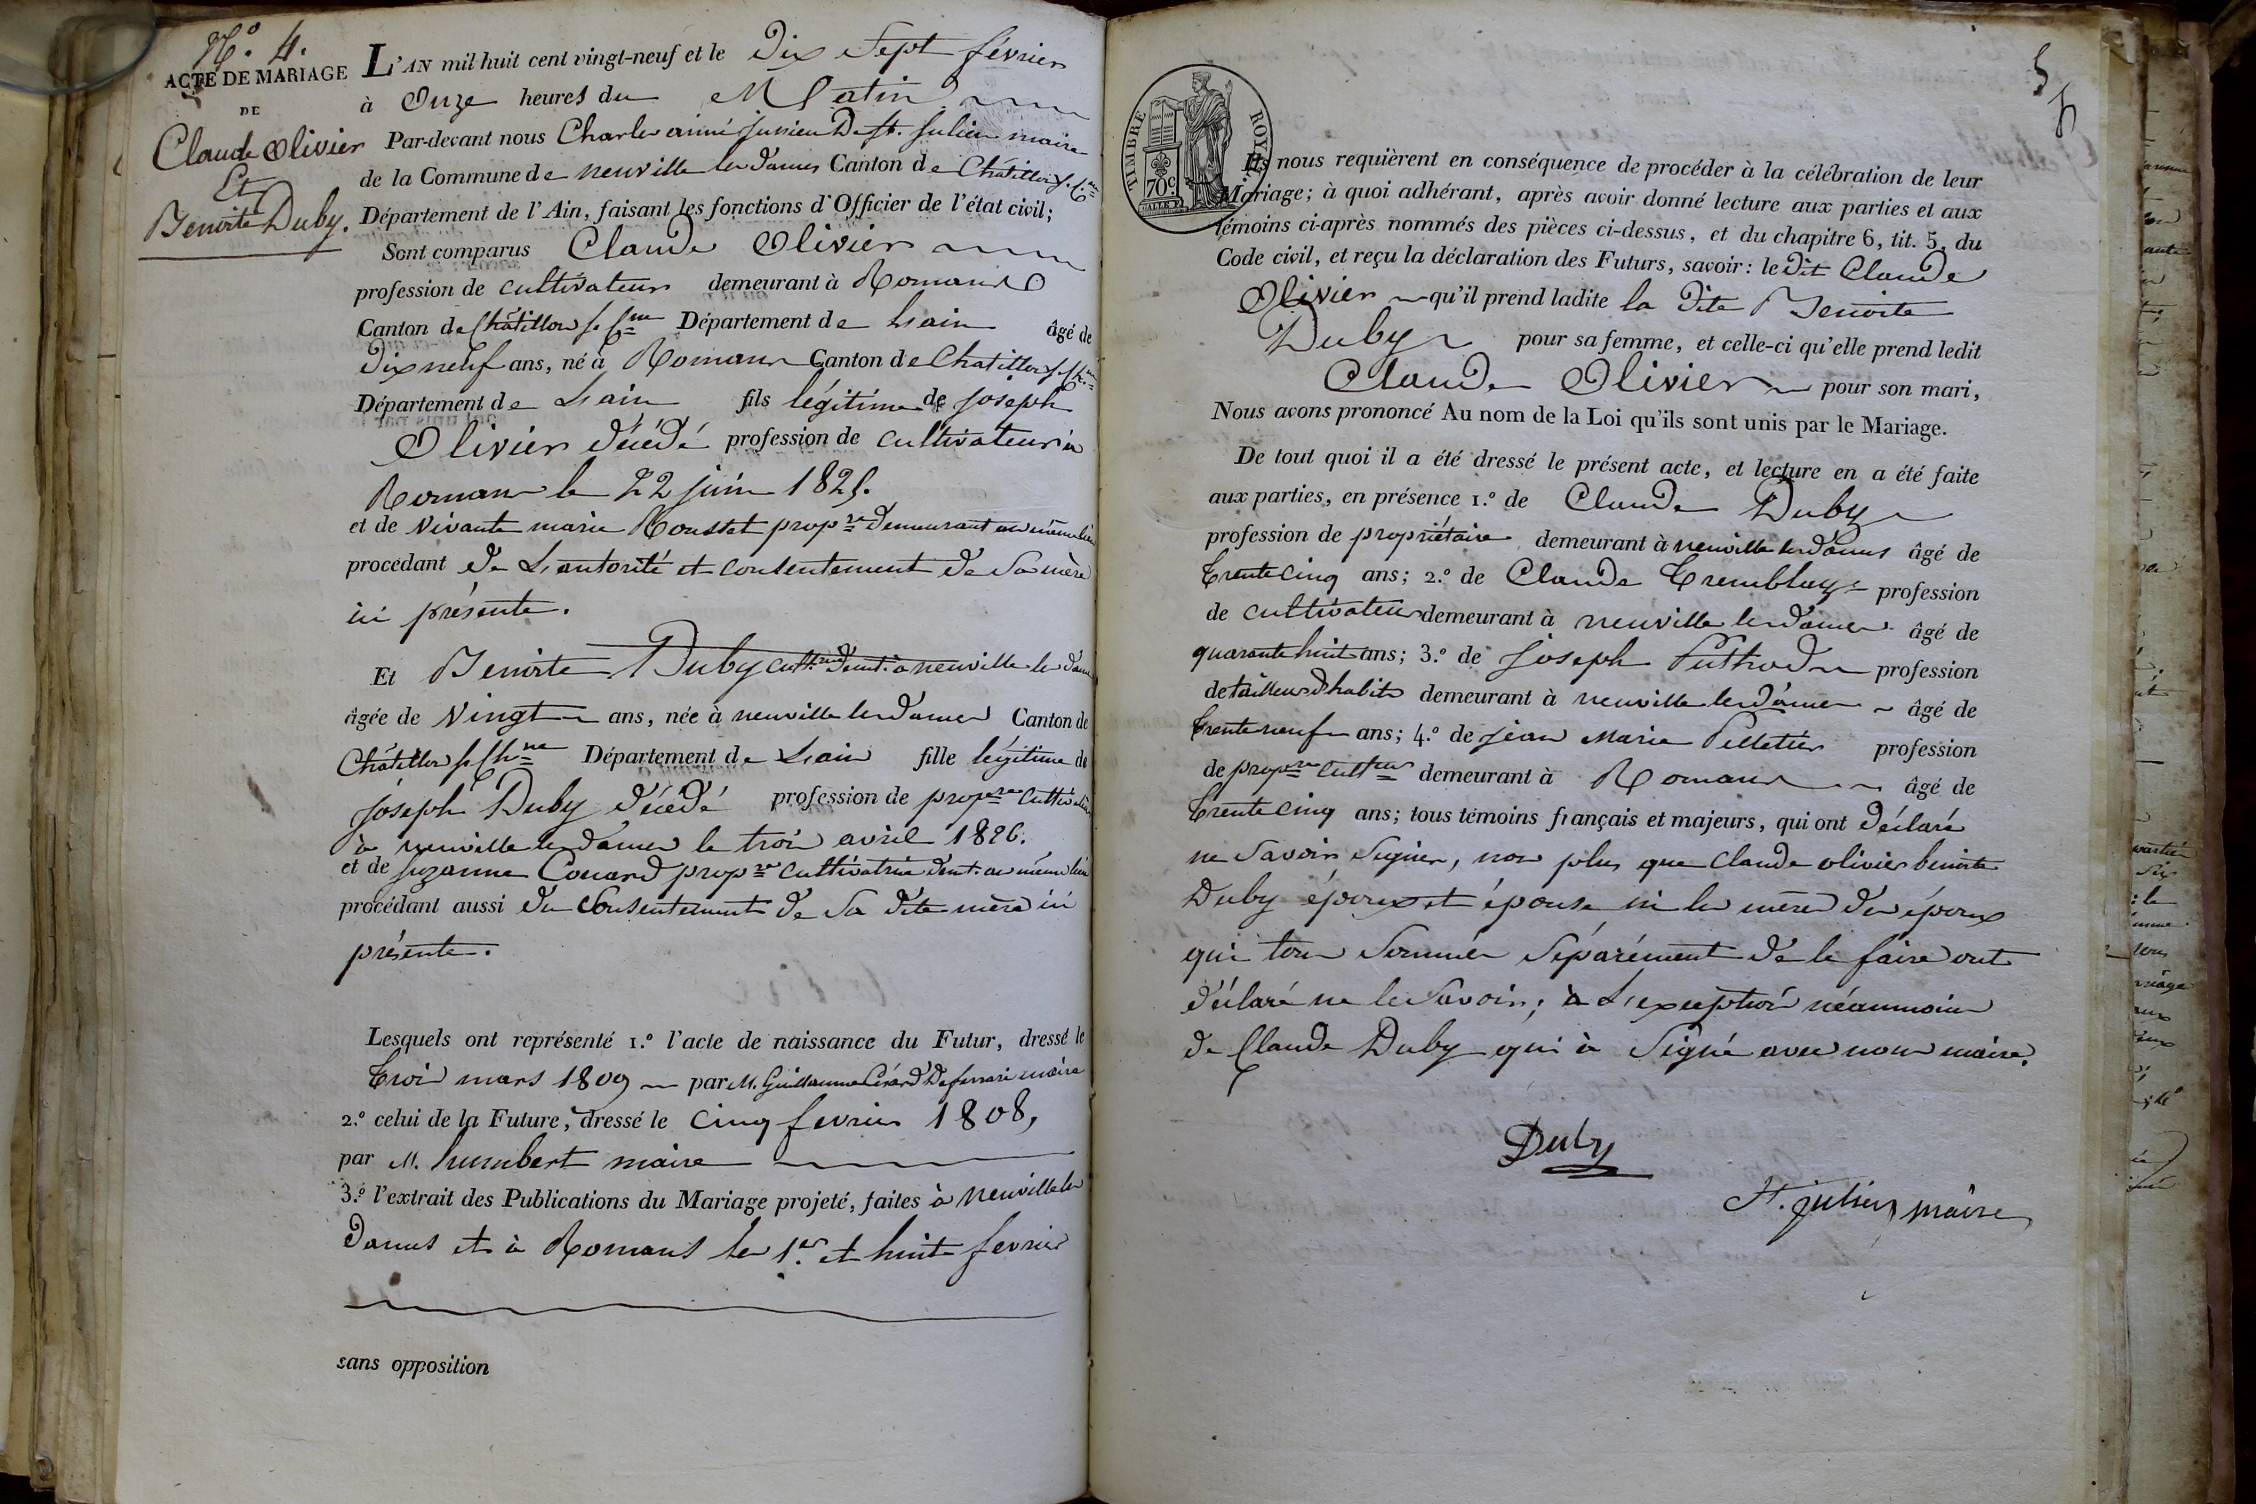 N.º 4.
ACTE DE MARIAGE
DE
Claude Olivier
Et
Benoite Duby.
L'AN mil huit cent vingt-neuf et le Dix Sept février
à Onze heures du Matin
Par-devant nous Charles aimé Jussieu De St. Julien maire
de la Commune de neuville les dames Canton de Châtillon s. C.ne
Département de l'Ain, faisant les fonctions d'Officier de l'état civil;
Sont comparus Claude Olivier
profession de cultivateur demeurant à Romans
Canton de Châtillon s. C.ne Département de L'ain âgé de
Dix neuf ans, né à Romans Canton de Chatillon s. Ch.ne
Département de L'ain fils légitime de Joseph
Olivier décédé profession de cultivateur à
Romans le 22 juin 1825.
et de Vivante marie Rousset prop.re demeurant au même lieu
procédant de L'autorité et consentement de Sa mère
ici présente.
Et Benoite Duby cult.ce demt. à neuville les dames
âgée de Vingt ans, née à neuville les dames Canton de
Châtillon s. Ch.ne Département de L'ain fille légitime de
Joseph Duby décédé profession de prop.re Cultivateur
à neuville les dames le trois avril 1826.
et de Suzanne Couard prop.re cultivatrice demt. au même lieu
procédant aussi du Consentement de Sa dite mère ici
présente.
Lesquels ont représenté 1.º l'acte de naissance du Futur, dressé le
trois mars 1809 par M. Guillaume Gérard Deferrari maire
2.º celui de la Future, dressé le cinq fevrier 1808,
par M. humbert maire
3.º l'extrait des Publications du Mariage projeté, faites à neuville les
Dames et à Romans les 1.er et huit fevrier
sans opposition
5
TIMBRE ROYAL
70c.
Ils nous requièrent en conséquence de procéder à la célébration de leur
Mariage; à quoi adhérant, après avoir donné lecture aux parties et aux
témoins ci-après nommés des pièces ci-dessus, et du chapitre 6, tit. 5, du
Code civil, et reçu la déclaration des Futurs, savoir: le dit Claude
Olivier qu'il prend ladite la dite Benoite
Duby pour sa femme, et celle-ci qu'elle prend ledit
Claude Olivier pour son mari,
Nous avons prononcé Au nom de la Loi qu'ils sont unis par le Mariage.
De tout quoi il a été dressé le présent acte, et lecture en a été faite
aux parties, en présence 1.º de Claude Duby
profession de propriétaire demeurant à neuville les dames âgé de
trente cinq ans; 2.º de Claude Tremblay profession
de cultivateur demeurant à neuville les dames âgé de
quarante huit ans; 3.º de Joseph Puthod profession
de tailleur d'habits demeurant à neuville les dames âgé de
trente neuf ans; 4.º de jean Marie Pelletier profession
de prop.re cult.eur demeurant à Romans âgé de
trente cinq ans; tous témoins français et majeurs, qui ont déclaré
ne Savoir Signer, non plus que Claude olivier benoite
Duby époux et épouse ni les mères des époux
qui tous Sommés Séparément de le faire ont
déclaré ne le Savoir; à L'exception néanmoins
de Claude Duby qui à Signé avec nous maire.
Duby
St. julien maire